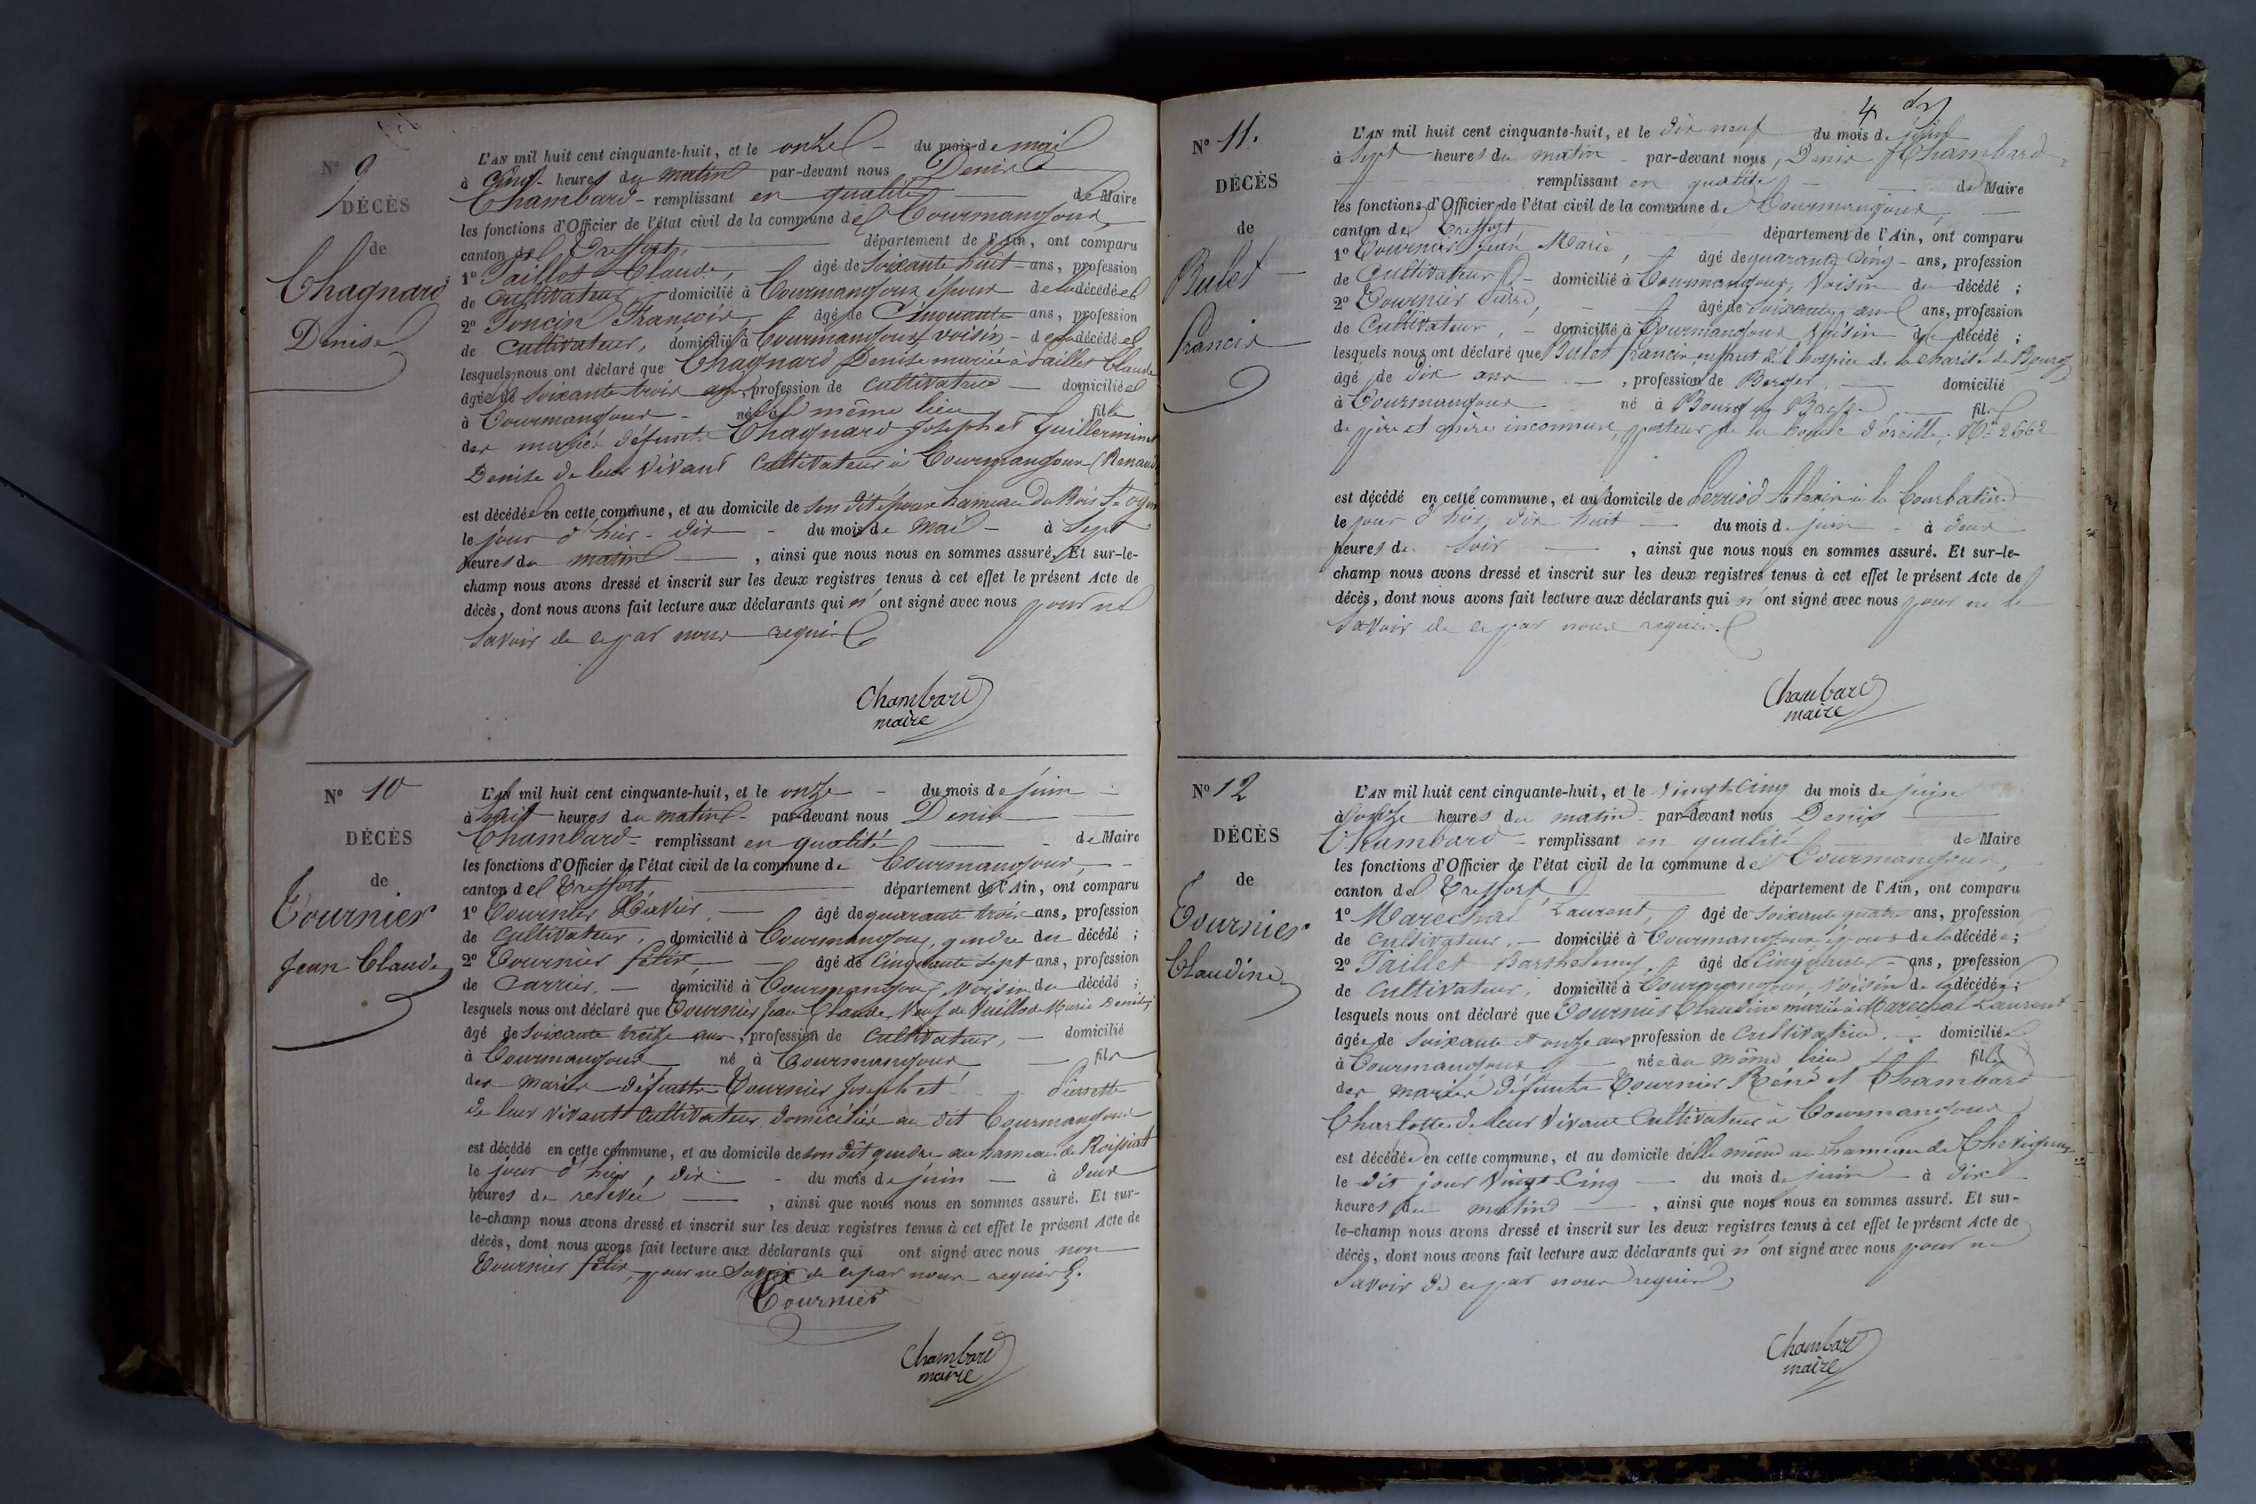 N° 9
DÉCÈS
de
Chagnard
Denise
L'AN mil huit cent cinquante-huit, et le onze du mois de mai
à cinq heures du matin par-devant nous Denis
Chambard remplissant en qualité de Maire
les fonctions d'Officier de l'état civil de la commune de Courmangoux,
canton de Treffort, département de l'Ain, ont comparu
1° Taillet Claude, âgé de soixante huit ans, profession
de cultivateur, domicilié à Courmangoux époux de la décédée
2° Foncin François, âgé de cinquante ans, profession
de cultivateur, domicilié à Courmangoux voisin de la décédée
lesquels nous ont déclaré que Chagnard Denise mariée à Taillet Claude
âgée de soixante trois ans, profession de cultivatrice domiciliée
à Courmangoux née au même lieu fille
des mariés défunts Chagnard Joseph et Guillerminet
Denise de leur vivant cultivateur à Courmangoux (Renaud
est décédée en cette commune, et au domicile de son dit époux hameau du Bois St
le jour d'hier dix du mois de mai à sept
heures du matin, ainsi que nous nous en sommes assuré. Et sur-le-
champ nous avons dressé et inscrit sur les deux registres tenus à cet effet le présent Acte de
décès, dont nous avons fait lecture aux déclarants qui n'ont signé avec nous pour ne
savoir de ce par nous requis
Chambard
maire
N° 10
DÉCÈS
de
Tournier
Jean Claude
L'AN mil huit cent cinquante-huit, et le onze du mois de juin
à huit heures du matin par-devant nous Denis
Chambard remplissant en qualité de Maire
les fonctions d'Officier de l'état civil de la commune de Courmangoux,
canton de Treffort, département de l'Ain, ont comparu
1° Tournier Xavier, âgé de quarante trois ans, profession
de cultivateur, domicilié à Courmangoux, gendre du décédé ;
2° Tournier Félix, âgé de cinquante sept ans, profession
de carrier, domicilié à Courmangoux, voisin du décédé ;
lesquels nous ont déclaré que Tournier Jean Claude Veuf de Vuillod Marie Denise,
âgé de soixante treize ans, profession de cultivateur, domicilié
à Courmangoux né à Courmangoux fils
des mariés défunts Tournier Joseph et Pierrette
de leur vivant cultivateur domiciliés au dit Courmangoux
est décédé en cette commune, et au domicile de son dit gendre au hameau de Roissiat
le jour d'hier, dix du mois de juin à deux
heures de relevée, ainsi que nous nous en sommes assuré. Et sur-
le-champ nous avons dressé et inscrit sur les deux registres tenus à cet effet le présent Acte de
décès, dont nous avons fait lecture aux déclarants qui ont signé avec nous non
Tournier Félix, pour ne savoir de ce par nous requis.
Tournier
Chambard
maire
4
N° 11.
DÉCÈS
de
Bulet
Francis
L'AN mil huit cent cinquante-huit, et le dix neuf du mois de juin
à sept heures du matin par-devant nous, Denis Chambard,
remplissant en qualité de Maire
les fonctions d'Officier de l'état civil de la commune de Courmangoux,
canton de Treffort département de l'Ain, ont comparu
1° Tournier Jean Marie, âgé de quarante cinq ans, profession
de cultivateur domicilié à Courmangoux, voisin du décédé ;
2° Tournier Pierre, âgé de soixante ans, profession
de cultivateur, domicilié à Courmangoux voisin du décédé ;
lesquels nous ont déclaré que Bulet Francis enfant de l'hospice de la charité de Bourg
âgé de dix ans, profession de Berger, domicilié
à Courmangoux né à Bourg en Bresse fils
de père et mère inconnus, porteur de la boucle d'oreille N° 2662
est décédé en cette commune, et au domicile de à la Courbatière
le jour d'hier dix huit du mois de juin à deux
heures du soir, ainsi que nous nous en sommes assuré. Et sur-le-
champ nous avons dressé et inscrit sur les deux registres tenus à cet effet le présent Acte de
décès, dont nous avons fait lecture aux déclarants qui n'ont signé avec nous pour ne le
savoir de ce par nous requis.
Chambard
maire
N° 12
DÉCÈS
de
Tournier
Claudine
L'AN mil huit cent cinquante-huit, et le vingt-cinq du mois de juin
à onze heures du matin par-devant nous Denis
Chambard remplissant en qualité de Maire
les fonctions d'Officier de l'état civil de la commune de Courmangoux,
canton de Treffort, département de l'Ain, ont comparu
1° Marechal Laurent, âgé de soixante quatre ans, profession
de cultivateur, domicilié à Courmangoux époux de la décédée ;
2° Taillet Barthelemy, âgé de cinquante ans, profession
de cultivateur, domicilié à Courmangoux, voisin de la décédée ;
lesquels nous ont déclaré que Tournier Claudine mariée à Marechal Laurent
âgée de soixante et onze ans profession de cultivatrice, domiciliée
à Courmangoux née au même lieu fille
des mariés défunts Tournier Réné et Chambard
Charlotte de leur vivant cultivateur à Courmangoux
est décédée en cette commune, et au domicile d'elle même au hameau de Chevignat
le dit jour vingt-cinq du mois de juin à dix
heures du matin, ainsi que nous nous en sommes assuré. Et sur-
le-champ nous avons dressé et inscrit sur les deux registres tenus à cet effet le présent Acte de
décès, dont nous avons fait lecture aux déclarants qui n'ont signé avec nous pour ne
savoir de ce par nous requis
Chambard
maire